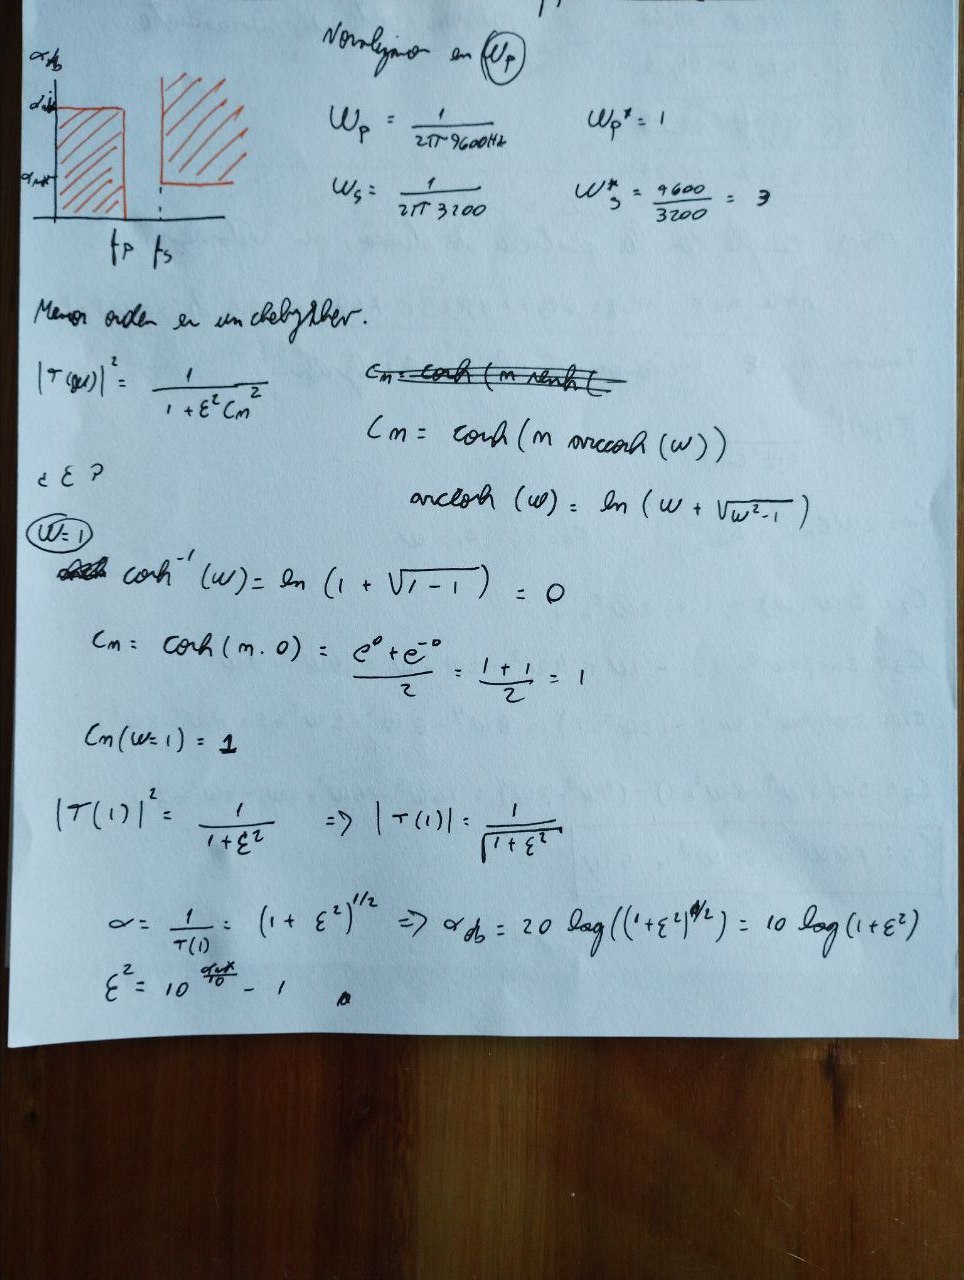 Normalizamos en ωp
αdb
αmin
αmax
fp fs
ωp = 1 / 2π 9600Hz ωp* = 1
ωs = 1 / 2π 3200 ωs* = 9600 / 3200 = 3
Menor orden en un chebyshev.
|T(jω)|² = 1 / 1 + ε² Cn²
Cn = cosh (n senh (
Cn = cosh (n arccosh (ω))
¿ ε ?
arccosh (ω) = ln (ω + √ω² - 1)
ω=1
cosh⁻¹ (ω) = ln (1 + √1 - 1) = 0
Cn = cosh (n . 0) = e⁰ + e⁻⁰ / 2 = 1 + 1 / 2 = 1
Cn (ω=1) = 1
|T(1)|² = 1 / 1 + ε² => |T(1)| = 1 / √1 + ε²
α = 1 / T(1) = (1 + ε²)^1/2 => αdb = 20 log((1+ε²)^1/2) = 10 log (1+ε²)
ε² = 10^αmax/10 - 1